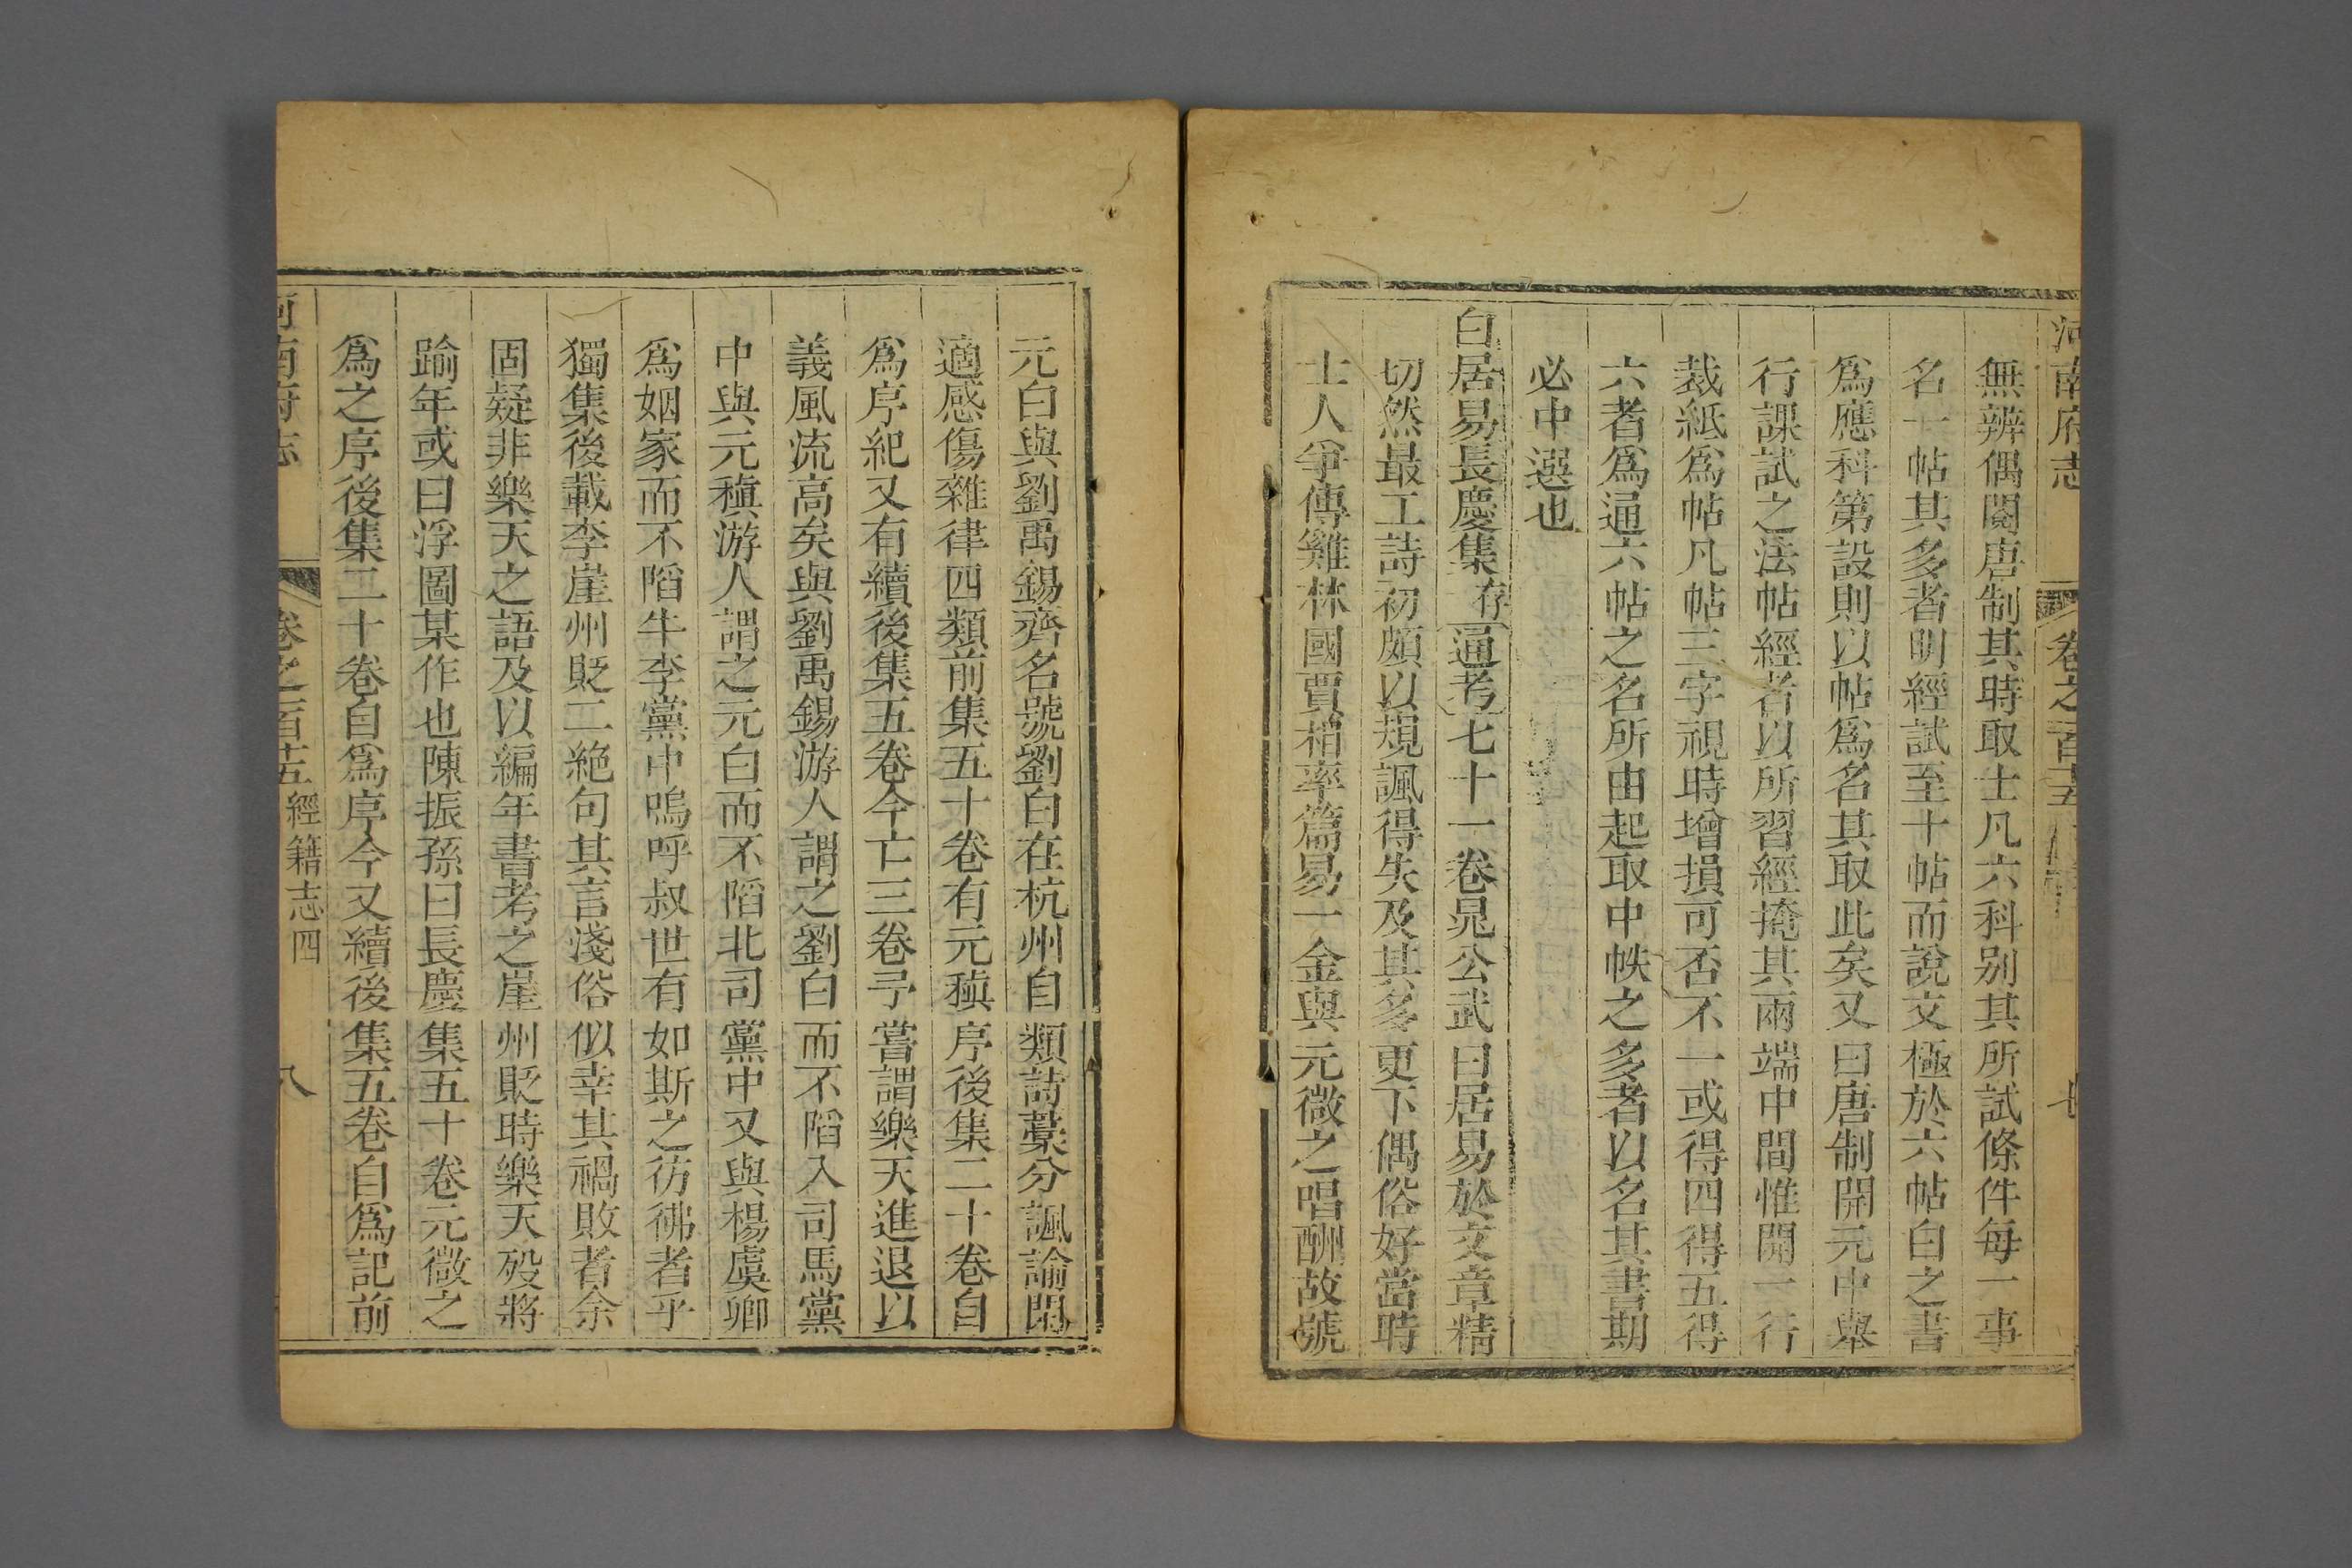 河南府志 卷之一百十五 七
無辨偶閱唐制其時取士凡六科别其所試條件每一事
名一帖其多者明經試至十帖而說文極於六帖白之書
爲應科第設則以帖爲名其取此矣又曰唐制開元中舉
行課試之法帖經者以所習經掩其兩端中間惟開一行
裁紙爲帖凡帖三字視時增損可否不一或得四得五得
六者爲通六帖之名所由起取中帙之多者以名其書期
必中選也
白居易長慶集存通考七十一卷晁公武曰居易於文章精
切然最工詩初頗以規諷得失及其多更下偶俗好當時
士人爭傳雞林國賈相率篇易一金與元微之唱酬故號
元白與劉禹錫齊名號劉白在杭州自類詩藁分諷諭閒
適感傷雜律四類前集五十卷有元稹序後集二十卷自
爲序紀又有續後集五卷今亡三卷予嘗謂樂天進退以
義風流高矣與劉禹錫游人謂之劉白而不䧟入司馬黨
中與元稹游人謂之元白而不䧟北司黨中又與楊虞卿
爲姻家而不䧟牛李黨中嗚呼叔世有如斯之彷彿者乎
獨集後載李崖州貶二絶句其言淺俗似幸其禍敗者余
固疑非樂天之語及以編年書考之崖州貶時樂天歿將
踰年或曰浮圖某作也陳振孫曰長慶集五十卷元微之
爲之序後集二十卷自爲序今又續後集五卷自爲記前
河南府志 卷之一百十五 經籍志四 八